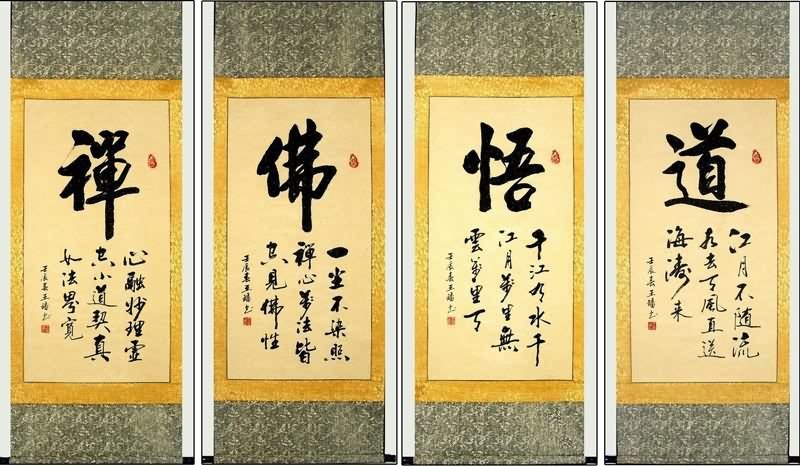 禪
心融妙理虚
空小道契真
如法界寬
壬辰春王书
佛
一尘不染照
禅心萬法皆
空見佛性
壬辰春王书
悟
千江有水千
江月萬里無
雲萬里天
壬辰春王书
道
江月不随流
水去天風直送
海濤来
壬辰春王书